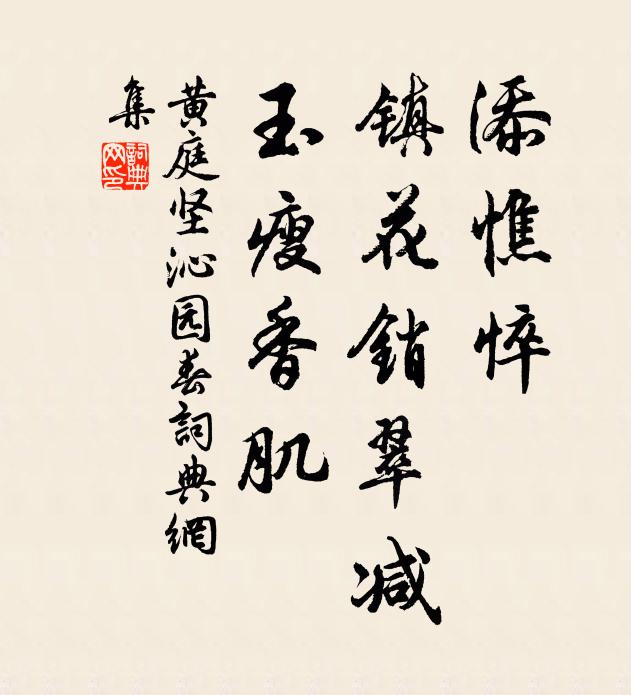 添憔悴
镇花销翠减
玉瘦香肌
黄庭坚沁园春詞典網
集
詞典
网印